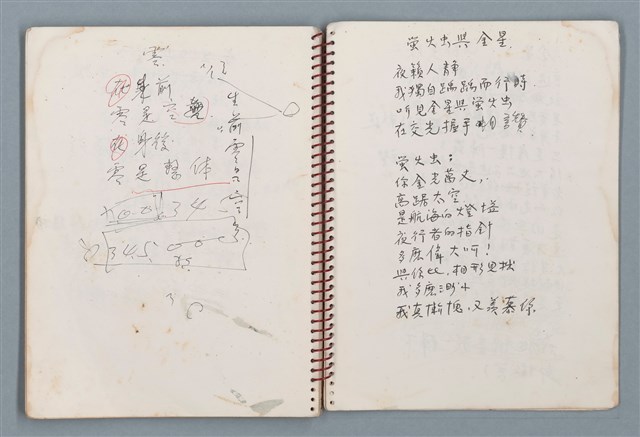 零
在 身前
零是空無
在 身後
零是整体
生前零是空
3 4
3 4 5
螢火虫與金星
夜籟人静
我獨自踽踽而行時
听見金星與螢火虫
在交光握手 相言讚
螢火虫:
你金光萬丈,
高踞太空
是航海的燈塔
夜行者的指針
多麽偉大呵!
與你比,相形見拙
我多麽渺小
我真慚愧,又羨慕你